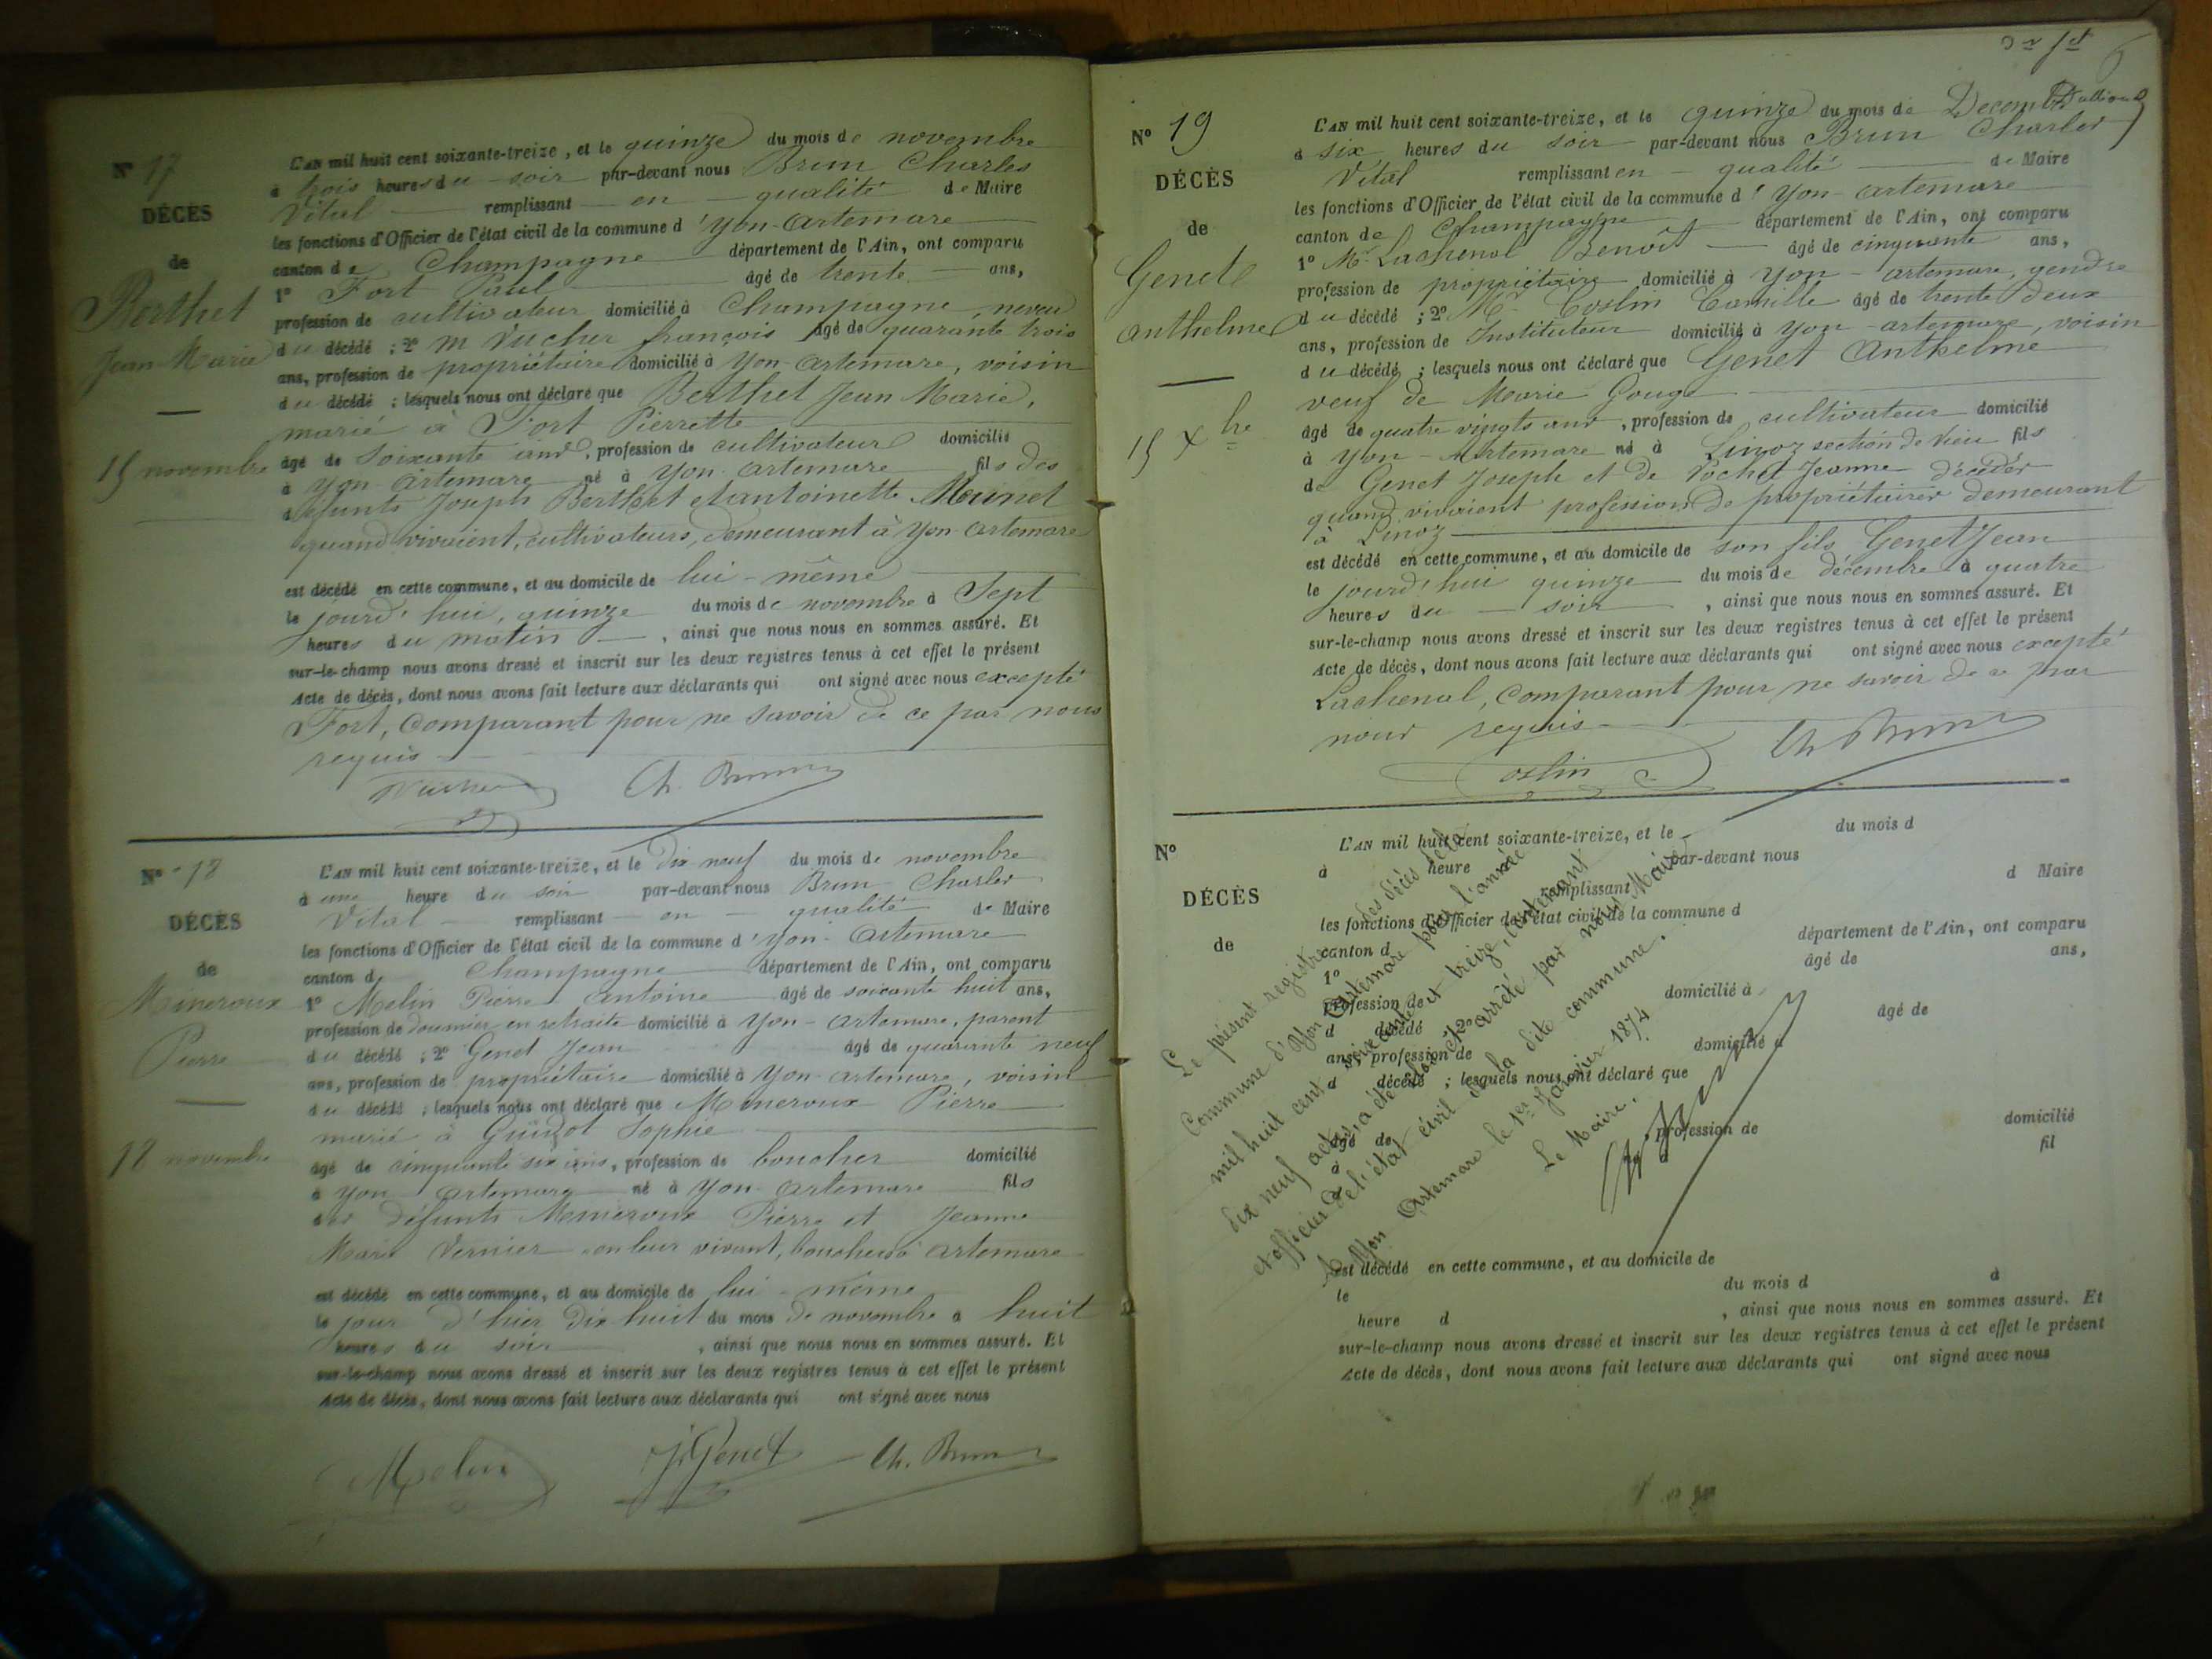 Nº 17
DÉCÈS
de
Berthet
Jean-Marie
15 novembre
L'AN mil huit cent soixante-treize, et le quinze du mois de novembre
à trois heures du soir par-devant nous Brun Charles
Vital remplissant en qualité de Maire
les fonctions d'Officier de l'état civil de la commune d'yon-artemare
canton de Champagne département de l'Ain, ont comparu
1º Fort Paul âgé de trente ans,
profession de cultivateur domicilié à Champagne, neveu
du décédé ; 2º M Vucher françois âgé de quarante trois
ans, profession de propriétaire domicilié à yon-artemare, voisin
du décédé ; lesquels nous ont déclaré que Berthet Jean Marie,
marié à Fort Pierrette
âgé de soixante ans, profession de cultivateur domicilié
à yon-artemare né à yon-artemare fils des
défunts Joseph Berthet et antoinette Munet
quand vivaient, cultivateurs, demeurant à yon-artemare
est décédé en cette commune, et au domicile de lui-même
le jourd'hui, quinze du mois de novembre à Sept
heures du matin, ainsi que nous nous en sommes assuré. Et
sur-le-champ nous avons dressé et inscrit sur les deux registres tenus à cet effet le présent
Acte de décès, dont nous avons fait lecture aux déclarants qui ont signé avec nous excepté
Fort, comparant pour ne savoir de ce par nous
requis
Vucher Ch. Brun
Nº 18
DÉCÈS
de
Mineroux
Pierre
18 novembre
L'AN mil huit cent soixante-treize, et le dix neuf du mois de novembre
à une heure du soir par-devant nous Brun Charles
Vital remplissant en qualité de Maire
les fonctions d'Officier de l'état civil de la commune d'yon-artemare
canton de Champagne département de l'Ain, ont comparu
1º Melin Pierre antoine âgé de soixante huit ans,
profession de douanier en retraite domicilié à yon-artemare, parent
du décédé ; 2º Genet Jean âgé de quarante neuf
ans, profession de propriétaire domicilié à yon-artemare, voisin
du décédé ; lesquels nous ont déclaré que Mineroux Pierre
marié à Guizot Sophie
âgé de cinquante six ans, profession de boucher domicilié
à yon artemare né à yon-artemare fils
des défunts Mineroux Pierre et Jeanne
Marie Vernier en leur vivant, bouchers à artemare
est décédé en cette commune, et au domicile de lui-même
le jour d'hier dix huit du mois de novembre à huit
heures du soir, ainsi que nous nous en sommes assuré. Et
sur-le-champ nous avons dressé et inscrit sur les deux registres tenus à cet effet le présent
Acte de décès, dont nous avons fait lecture aux déclarants qui ont signé avec nous
Melin J. Genet Ch. Brun
Nº 19
DÉCÈS
de
Genet
anthelme
15 Xbre
L'AN mil huit cent soixante-treize, et le quinze du mois de Decembre
à six heures du soir par-devant nous Brun Charles
Vital remplissant en qualité de Maire
les fonctions d'Officier de l'état civil de la commune d'yon-artemare
canton de Champagne département de l'Ain, ont comparu
1º Mr Lachenal Benoît âgé de cinquante ans,
profession de propriétaire domicilié à yon-artemare, gendre
du décédé ; 2º Mr Coslin Camille âgé de trente deux
ans, profession de Instituteur domicilié à yon-artemare, voisin
du décédé ; lesquels nous ont déclaré que Genet Anthelme
veuf de Marie Gouge
âgé de quatre vingts ans, profession de cultivateur domicilié
à yon-Artemare né à Linoz section de Vieu fils
de Genet Joseph et de Pochet Jeanne décédés
quand vivaient profession de propriétaires demeurant
à Linoz
est décédé en cette commune, et au domicile de son fils Genet Jean
le jourd'hui quinze du mois de décembre à quatre
heures du soir, ainsi que nous nous en sommes assuré. Et
sur-le-champ nous avons dressé et inscrit sur les deux registres tenus à cet effet le présent
Acte de décès, dont nous avons fait lecture aux déclarants qui ont signé avec nous excepté
Lachenal, comparant pour ne savoir de ce par
nous requis
Coslin Ch Brun
Nº
DÉCÈS
de
L'AN mil huit cent soixante-treize, et le du mois d
à heure par-devant nous
remplissant d Maire
les fonctions d'Officier de l'état civil de la commune d
canton d département de l'Ain, ont comparu
1º âgé de ans,
profession de domicilié à
d décédé ; 2º âgé de
ans, profession de domicilié à
d décédé ; lesquels nous ont déclaré que
âgé de , profession de domicilié
à né à fil
d
est décédé en cette commune, et au domicile de
le du mois d à
heure d , ainsi que nous nous en sommes assuré. Et
sur-le-champ nous avons dressé et inscrit sur les deux registres tenus à cet effet le présent
Acte de décès, dont nous avons fait lecture aux déclarants qui ont signé avec nous
Le présent registre des décès de la
Commune d'Yon Artemare pour l'année
mil huit cent soixante et treize, contenant
dix neuf actes, a été clos et arrêté par nous Maire
et officier de l'état civil de la dite commune.
A Yon Artemare le 1er Janvier 1874
Le Maire,
Ch Brun